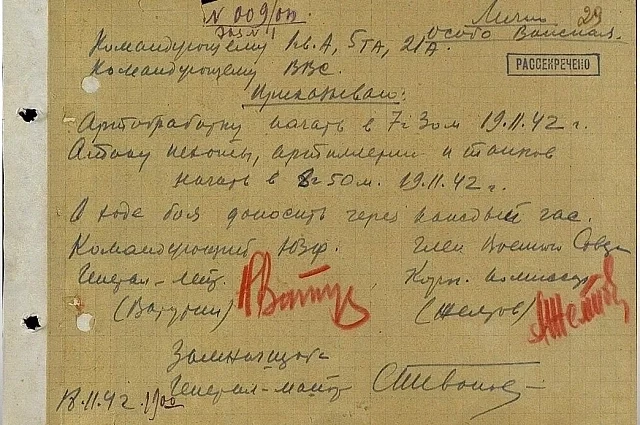 № 009/оп
Лично 29
Особо Важная.
Командующему 1 кв. А, 5ТА, 21А.
Командующему ВВС.
РАССЕКРЕЧЕНО
Приказываю:
Артобработку начать в 7ч 30м 19.11.42 г.
Атаку пехоты, артиллерии и танков
начать в 8ч 50м. 19.11.42 г.
О ходе боя доносить через каждый час.
Командующий ЮЗФ. Член Военного Совета
Генерал-лейт. Корп. комиссар
(Ватутин) (Желтов)
Замначштаба
Генерал-майор
18.11.42 1900